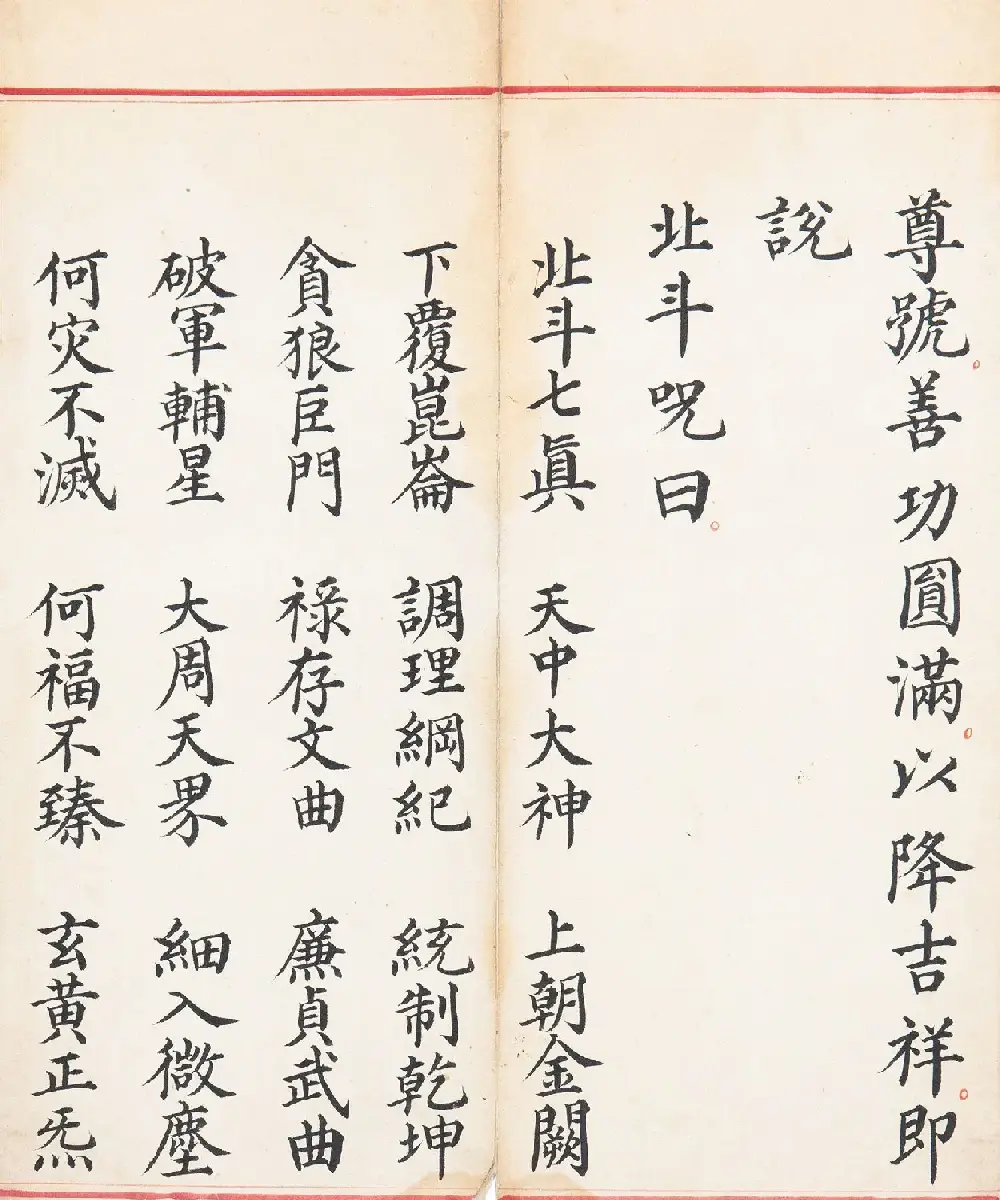 尊號。善功圓滿。以降吉祥。即
說
北斗呪曰。
北斗七眞 天中大神 上朝金闕
下覆崑崙 調理綱紀 統制乾坤
貪狼巨門 祿存文曲 廉貞武曲
破軍輔星 大周天界 細入微塵
何灾不滅 何福不臻 玄黃正炁